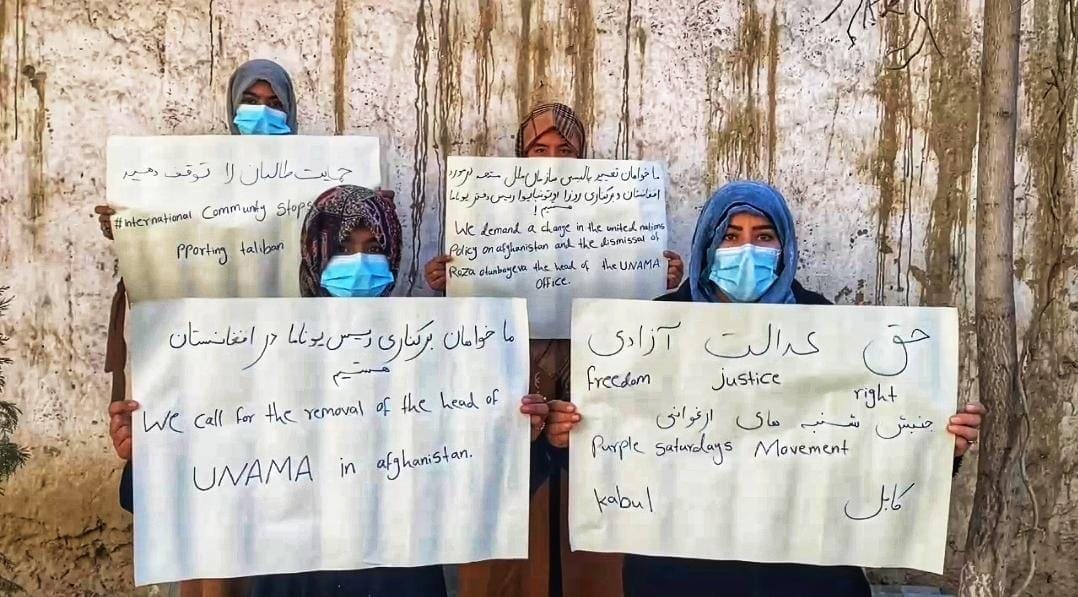 حمایت طالبان را توقف دهید
#international Community Stops
pporting taliban
ما خواهان تغییر پالیسی سازمان ملل متحد در مورد
افغانستان و برکناری روزا اوتونبایوا رییس دفتر یوناما
هستیم!
We demand a change in the united nations
Policy on afghanistan and the dismissal of
Roza otunbayeva the head of the UNAMA
Office.
ما خواهان برکناری رییس یوناما در افغانستان
هستیم
We call for the removal of the head of
UNAMA in afghanistan.
حق عدالت آزادی
freedom justice right
جنبش شنبه های ارغوانی
Purple Saturdays Movement
kabul کابل